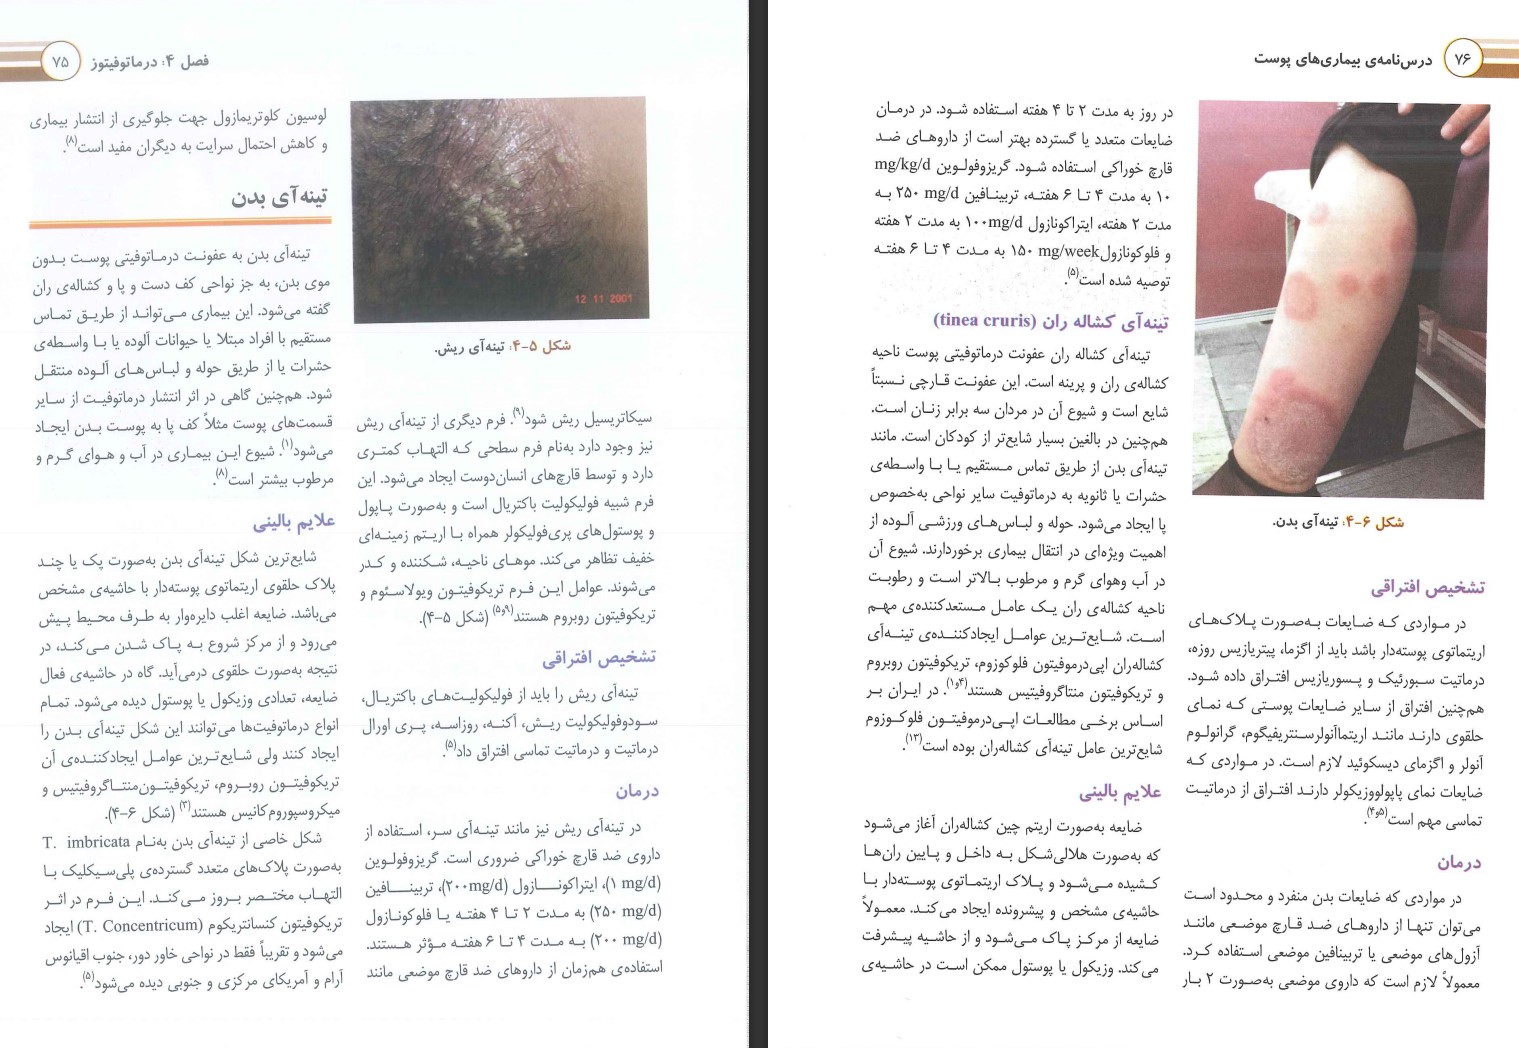 فصل ۴: درماتوفیتوز ۷۵
12 11 2001
شکل ۵-۴: تینه‌آی ریش.
سیکاتریسیل ریش شود(۹). فرم دیگری از تینه‌آی ریش
نیز وجود دارد به‌نام فرم سطحی که التهاب کمتری
دارد و توسط قارچ‌های انسان‌دوست ایجاد می‌شود. این
فرم شبیه فولیکولیت باکتریال است و به‌صورت پاپول
و پوستول‌های پری‌فولیکولر همراه با اریتم زمینه‌ای
خفیف تظاهر می‌کند. موهای ناحیه، شکننده و کدر
می‌شوند. عوامل این فرم تریکوفیتون ویولاسئوم و
تریکوفیتون روبروم هستند(۹و۵) (شکل ۵-۴).
تشخیص افتراقی
تینه‌آی ریش را باید از فولیکولیت‌های باکتریال،
سودوفولیکولیت ریش، آکنه، روزاسه، پری اورال
درماتیت و درماتیت تماسی افتراق داد(۵).
درمان
در تینه‌آی ریش نیز مانند تینه‌آی سر، استفاده از
داروی ضد قارچ خوراکی ضروری است. گریزوفولوین
(۱ mg/d)، ایتراکونازول (۲۰۰mg/d)، تربینافین
(۲۵۰ mg/d) به مدت ۲ تا ۴ هفته یا فلوکونازول
(۲۰۰ mg/d) به مدت ۴ تا ۶ هفته مؤثر هستند.
استفاده‌ی هم‌زمان از داروهای ضد قارچ موضعی مانند
لوسیون کلوتریمازول جهت جلوگیری از انتشار بیماری
و کاهش احتمال سرایت به دیگران مفید است(۸).
تینه‌آی بدن
تینه‌آی بدن به عفونت درماتوفیتی پوست بدون
موی بدن، به جز نواحی کف دست و پا و کشاله‌ی ران
گفته می‌شود. این بیماری می‌تواند از طریق تماس
مستقیم با افراد مبتلا یا حیوانات آلوده یا با واسطه‌ی
حشرات یا از طریق حوله و لباس‌های آلوده منتقل
شود. هم‌چنین گاهی در اثر انتشار درماتوفیت از سایر
قسمت‌های پوست مثلاً کف پا به پوست بدن ایجاد
می‌شود(۱). شیوع این بیماری در آب و هوای گرم و
مرطوب بیشتر است(۸).
علایم بالینی
شایع‌ترین شکل تینه‌آی بدن به‌صورت یک یا چند
پلاک حلقوی اریتماتوی پوسته‌دار با حاشیه‌ی مشخص
می‌باشد. ضایعه اغلب دایره‌وار به طرف محیط پیش
می‌رود و از مرکز شروع به پاک شدن می‌کند، در
نتیجه به‌صورت حلقوی درمی‌آید. گاه در حاشیه‌ی فعال
ضایعه، تعدادی وزیکول یا پوستول دیده می‌شود. تمام
انواع درماتوفیت‌ها می‌توانند این شکل تینه‌آی بدن را
ایجاد کنند ولی شایع‌ترین عوامل ایجادکننده‌ی آن
تریکوفیتون روبروم، تریکوفیتون‌منتاگروفیتیس و
میکروسپوروم‌کانیس هستند(۳) (شکل ۶-۴).
شکل خاصی از تینه‌آی بدن به‌نام T. imbricata
به‌صورت پلاک‌های متعدد گسترده‌ی پلی‌سیکلیک با
التهاب مختصر بروز می‌کند. این فرم در اثر
تریکوفیتون کنسانتریکوم (T. Concentricum) ایجاد
می‌شود و تقریباً فقط در نواحی خاور دور، جنوب اقیانوس
آرام و آمریکای مرکزی و جنوبی دیده می‌شود(۵).
۷۶ درس‌نامه‌ی بیماری‌های پوست
شکل ۶-۴: تینه‌آی بدن.
تشخیص افتراقی
در مواردی که ضایعات به‌صورت پلاک‌های
اریتماتوی پوسته‌دار باشد باید از اگزما، پیتریازیس روزه،
درماتیت سبورئیک و پسوریازیس افتراق داده شود.
هم‌چنین افتراق از سایر ضایعات پوستی که نمای
حلقوی دارند مانند اریتماآنولرسنتریفیگوم، گرانولوم
آنولر و اگزمای دیسکوئید لازم است. در مواردی که
ضایعات نمای پاپولووزیکولر دارند افتراق از درماتیت
تماسی مهم است(۵و۴).
درمان
در مواردی که ضایعات بدن منفرد و محدود است
می‌توان تنها از داروهای ضد قارچ موضعی مانند
آزول‌های موضعی یا تربینافین موضعی استفاده کرد.
معمولاً لازم است که داروی موضعی به‌صورت ۲ بار
در روز به مدت ۲ تا ۴ هفته استفاده شود. در درمان
ضایعات متعدد یا گسترده بهتر است از داروهای ضد
قارچ خوراکی استفاده شود. گریزوفولوین mg/kg/d
۱۰ به مدت ۴ تا ۶ هفته، تربینافین ۲۵۰ mg/d به
مدت ۲ هفته، ایتراکونازول ۱۰۰mg/d به مدت ۲ هفته
و فلوکونازول۱۵۰ mg/week به مدت ۴ تا ۶ هفته
توصیه شده است(۵).
تینه‌آی کشاله ران (tinea cruris)
تینه‌آی کشاله ران عفونت درماتوفیتی پوست ناحیه
کشاله‌ی ران و پرینه است. این عفونت قارچی نسبتاً
شایع است و شیوع آن در مردان سه برابر زنان است.
هم‌چنین در بالغین بسیار شایع‌تر از کودکان است. مانند
تینه‌آی بدن از طریق تماس مستقیم یا با واسطه‌ی
حشرات یا ثانویه به درماتوفیت سایر نواحی به‌خصوص
پا ایجاد می‌شود. حوله و لباس‌های ورزشی آلوده از
اهمیت ویژه‌ای در انتقال بیماری برخوردارند. شیوع آن
در آب وهوای گرم و مرطوب بالاتر است و رطوبت
ناحیه کشاله‌ی ران یک عامل مستعدکننده‌ی مهم
است. شایع‌ترین عوامل ایجادکننده‌ی تینه‌آی
کشاله‌ران اپی‌درموفیتون فلوکوزوم، تریکوفیتون روبروم
و تریکوفیتون منتاگروفیتیس هستند(۴و۱). در ایران بر
اساس برخی مطالعات اپی‌درموفیتون فلوکوزوم
شایع‌ترین عامل تینه‌آی کشاله‌ران بوده است(۱۳).
علایم بالینی
ضایعه به‌صورت اریتم چین کشاله‌ران آغاز می‌شود
که به‌صورت هلالی‌شکل به داخل و پایین ران‌ها
کشیده می‌شود و پلاک اریتماتوی پوسته‌دار با
حاشیه‌ی مشخص و پیشرونده ایجاد می‌کند. معمولاً
ضایعه از مرکز پاک می‌شود و از حاشیه پیشرفت
می‌کند. وزیکول یا پوستول ممکن است در حاشیه‌ی